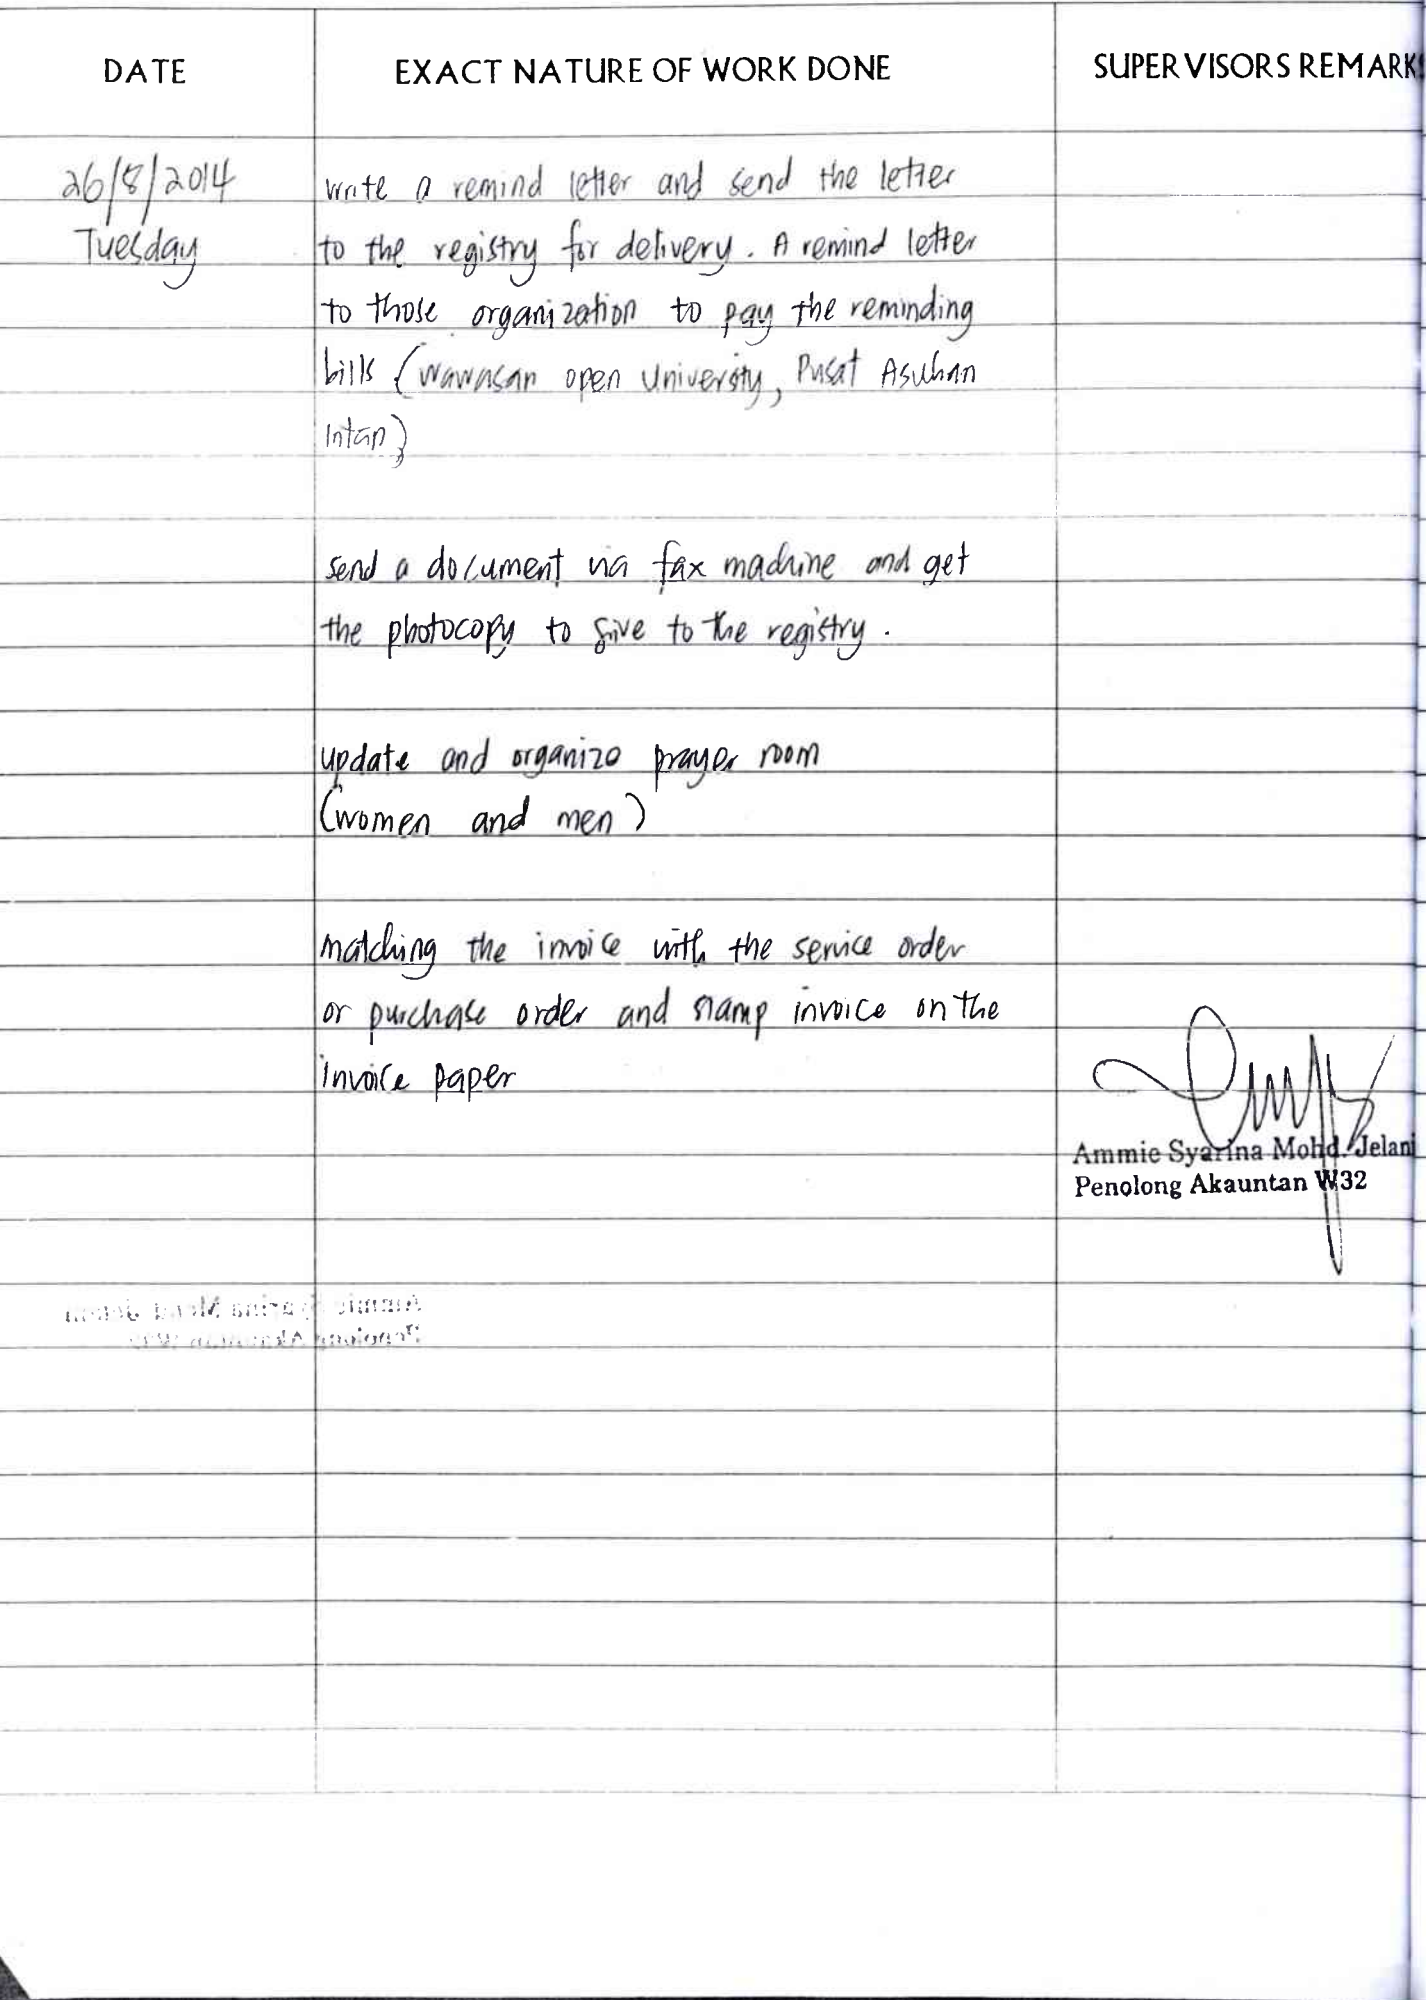 DATE
EXACT NATURE OF WORK DONE
SUPERVISORS REMARKS
26/8/2014
Tuesday
write a remind letter and send the letter
to the registry for delivery. A remind letter
to those organization to pay the reminding
bills (Wawasan open University, Pusat Asuhan
Intan)
send a document via fax machine and get
the photocopy to give to the registry.
update and organize prayer room
(women and men)
matching the invoice with the service order
or purchase order and stamp invoice on the
invoice paper
Ammie Syarina Mohd. Jelani
Penolong Akauntan W32